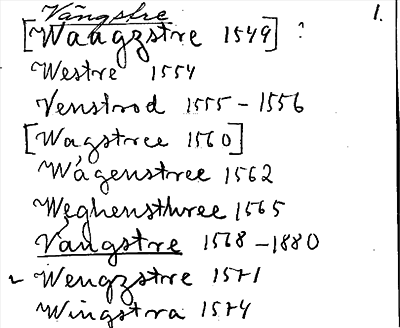 Vängstre
1.
[Waagzstre 1549] ?
Westre 1554
Venstrod 1555-1556
[Wagstree 1560]
Wágenstree 1562
Weghensthree 1565
Vangstre 1568-1880
~ Wengzstre 1571
Wingstra 1574